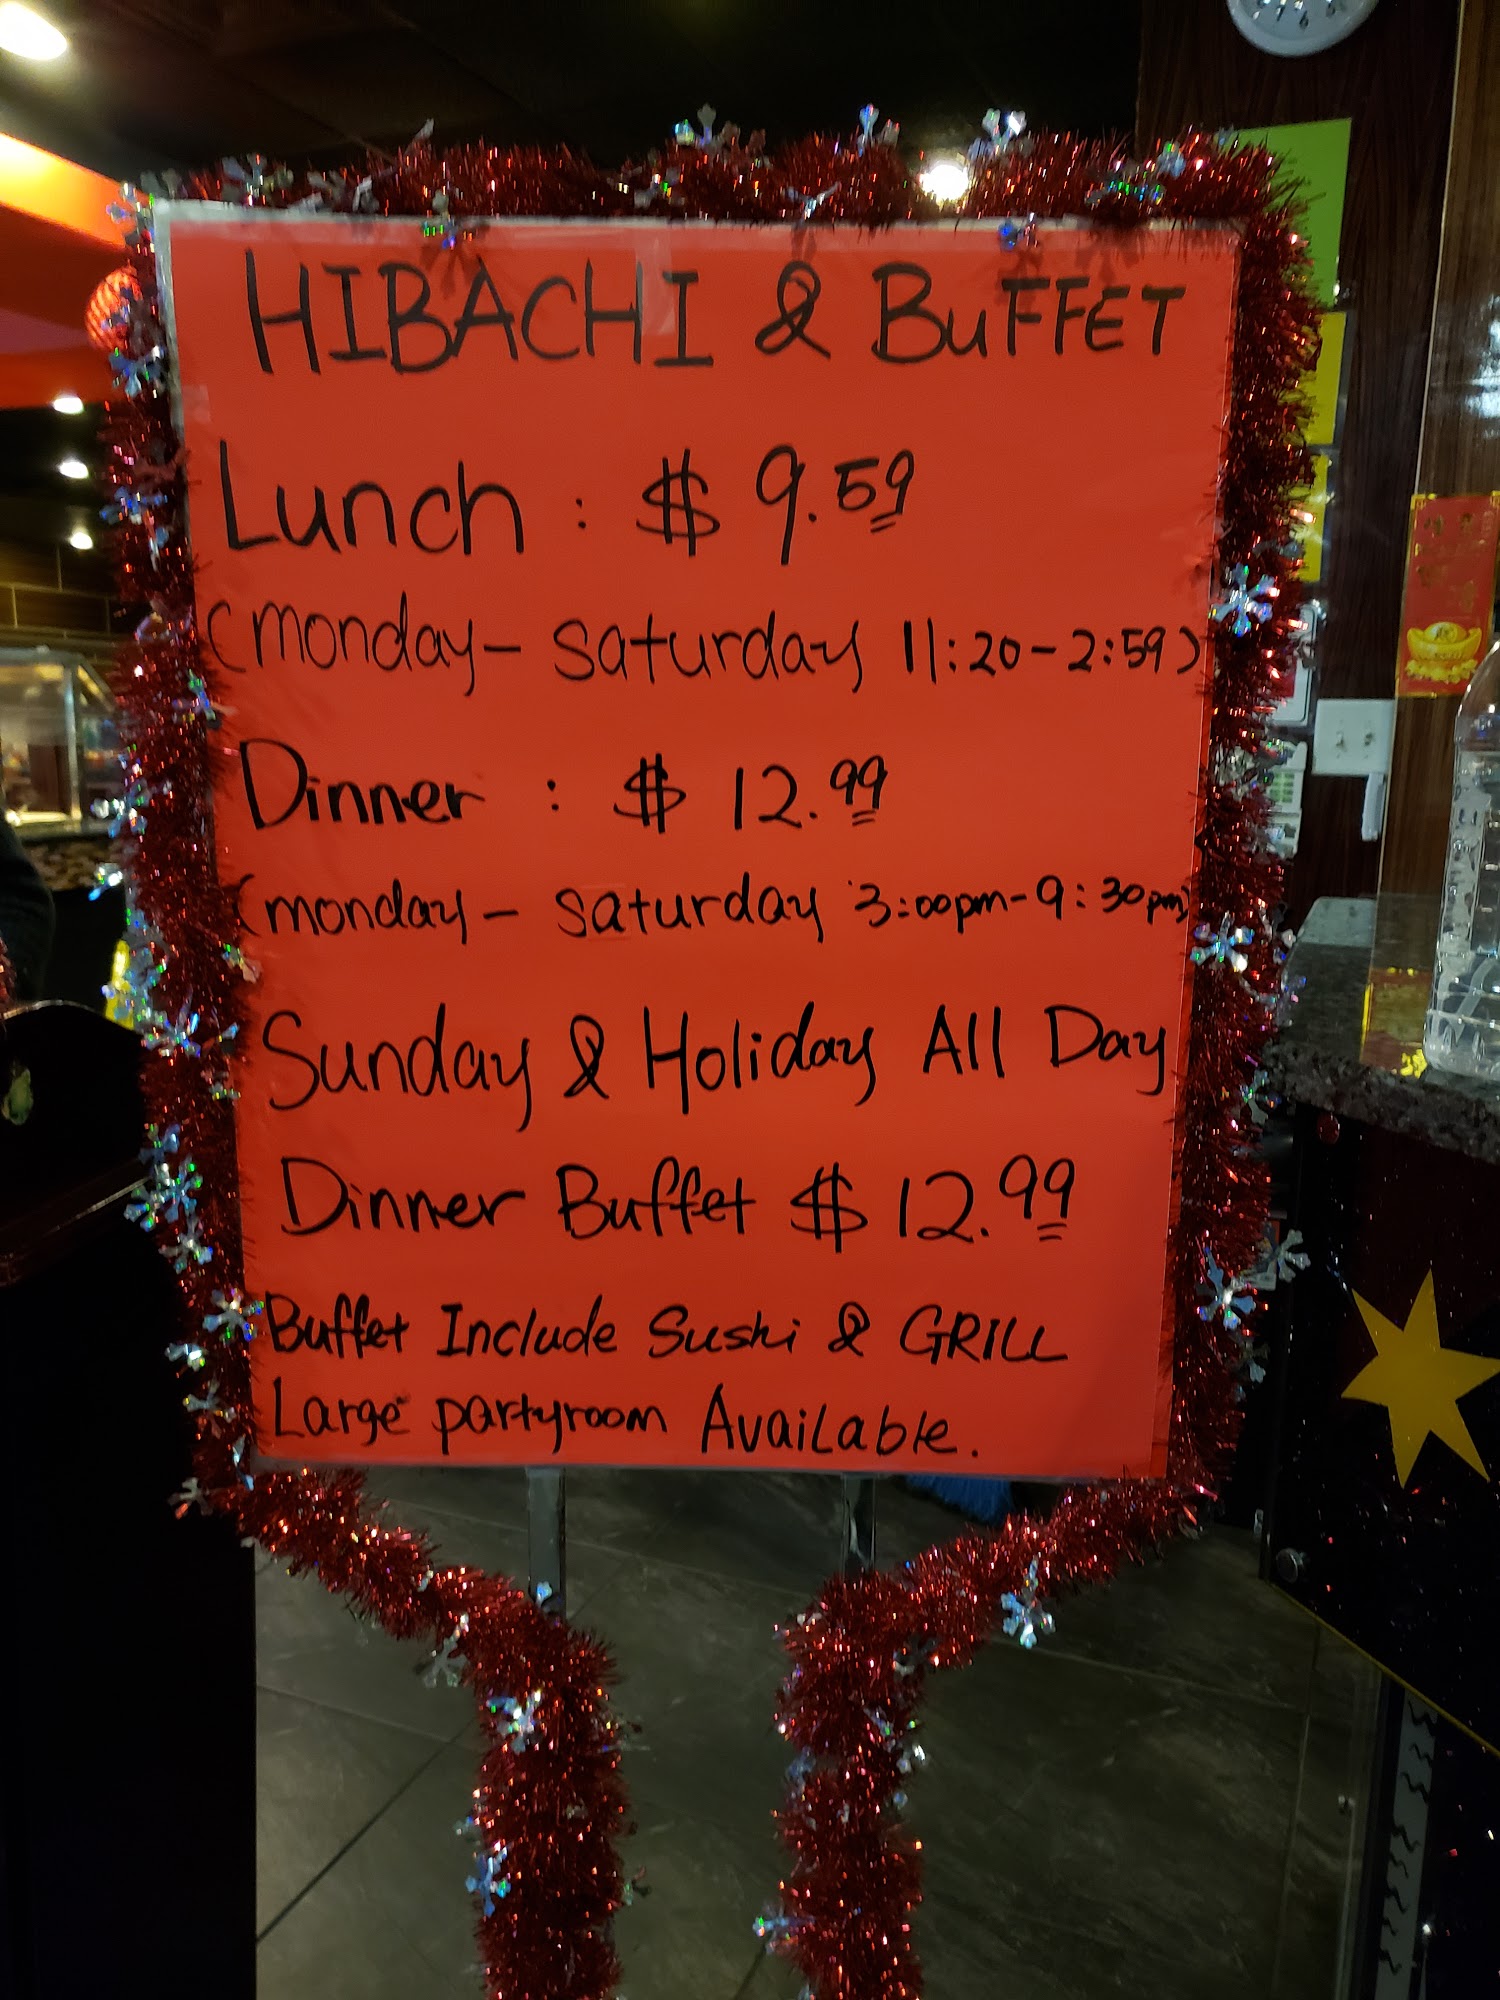 HIBACHI & BuFFET
Lunch : $ 9.59
(monday - saturday 11:20 - 2:59)
Dinner : $ 12.99
(monday - saturday 3:00pm - 9:30pm)
Sunday & Holiday All Day
Dinner Buffet $ 12.99
Buffet Include Sushi & GRILL
Large partyroom Available.